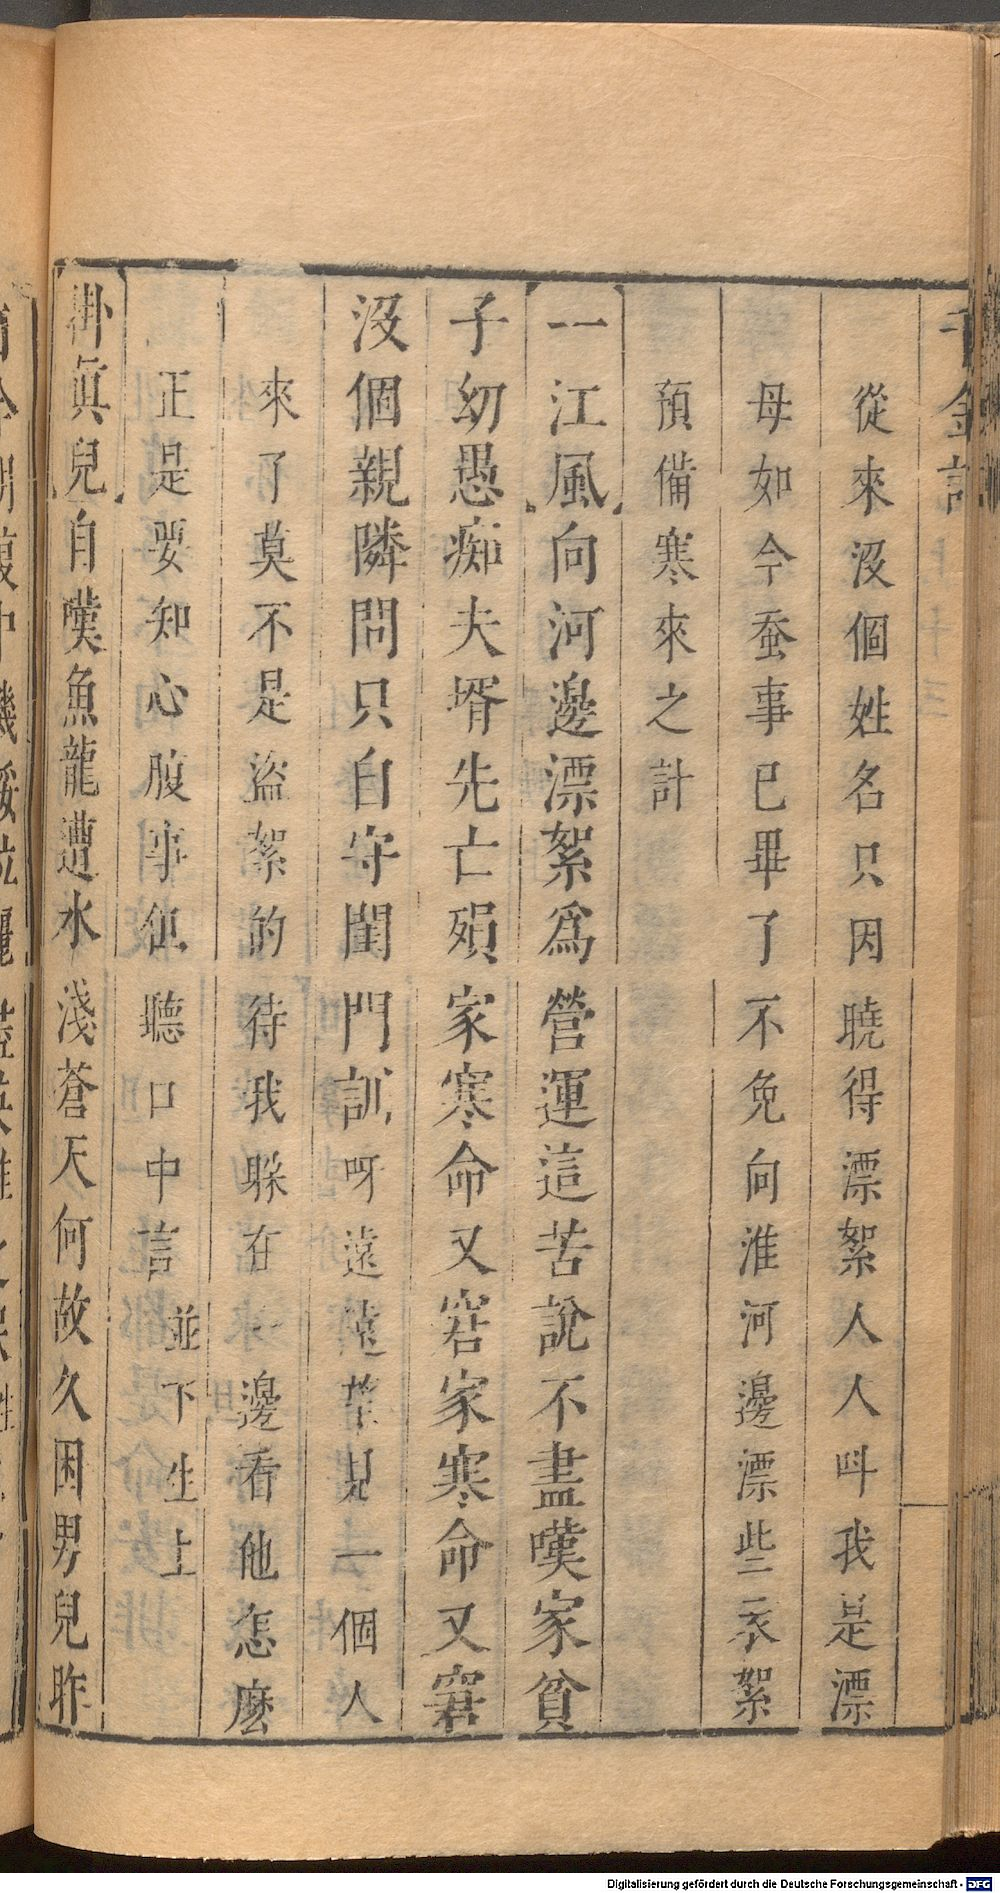 千金記
從來沒個姓名只因曉得漂絮人人叫我是漂
母如今蚕事已畢了不免向淮河邊漂些衣絮
預備寒來之計
一江風向河邊漂絮爲營運這苦說不盡嘆家貧
子幼愚痴夫壻先亡殞家寒命又窘家寒命又窘
沒個親隣問只自守閨門訓呀遠遠望見一個人
來了莫不是盜絮的待我躲在一邊看他怎麼
正是要知心腹事但聽口中言並下生上
掛眞兒自嘆魚龍遭水淺蒼天何故久困男兒昨
Digitalisierung gefördert durch die Deutsche Forschungsgemeinschaft - DFG